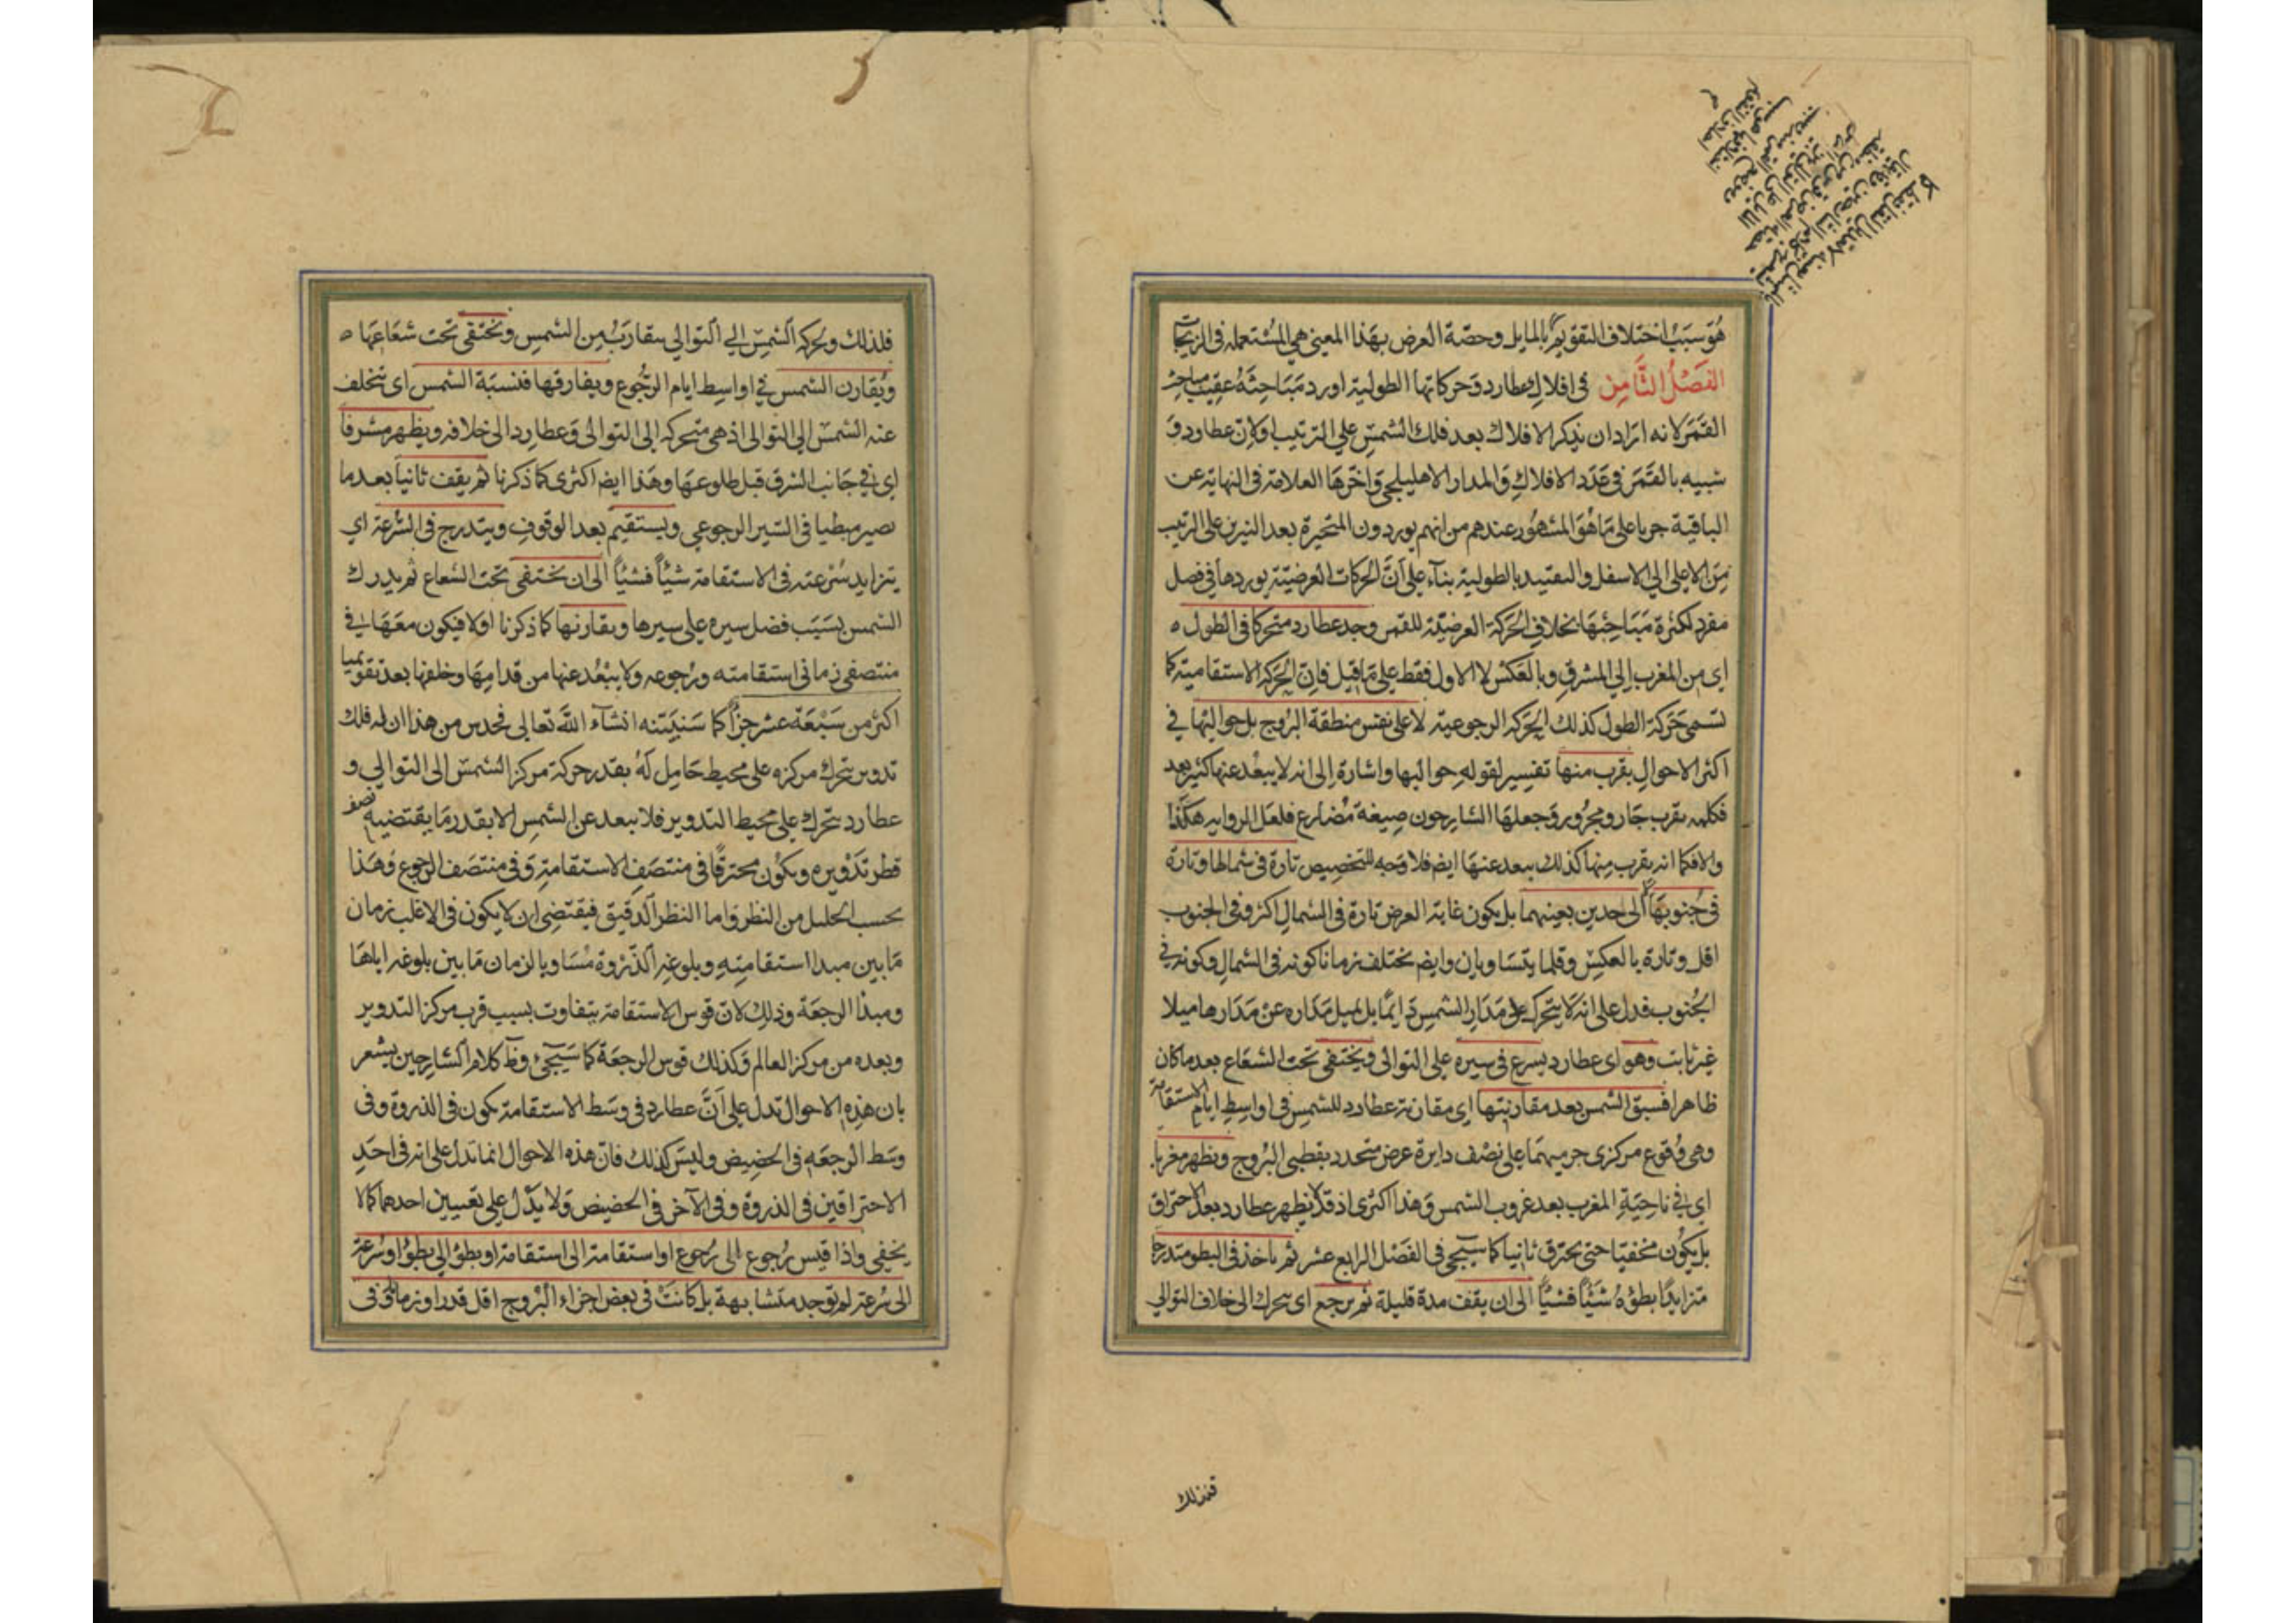 هُوَ سَبَبُ اختلاف التقويم بالمايل وحصّة العرض بهَذا المعنى هى المُستعمله فى الزيجات
الفَصْلُ الثَّامِن فى افلاك عطارد وَحركاتها الطولية اورد مَبَاحِثَهُ عقِيبَ مباحث
القمَر لانه ارَادان يذكر الافلاك بعد فلك الشمسِ علي الترتيب اولانّ عطارد وَ
شبيه بالقمَر فى عَدَد الافلاكِ وَالمدار الاهليلجى وَاخّرهَا العلامة فى النهاية عن
الباقية جريا على مَا هُوَ المشهُور عندهم من انهم يوردون المتحيرة بعد النيرين على الترتيب
مِنَ الاعلى الي الاسفل والتقييد بالطولية بنآء علي اَنَّ الحركات العرضيّة يوردها فى فصل
مفرد لكثرة مَبَاحِثهَا بخلافِ الحَركة العرضيّة للقمر وجد عطارد متحركا فى الطول ه
اى من المغرب الِي المشرقِ وبالعَكسْ لا الاول فقط علي مَا قيل فاِن الحَركه الاستقامية كما
تسمى حَركة الطول كذلك الحَركه الرجوعية لا على نفس منطقة البرُوج بل حواليها في
اكثر الاحوالِ بقرب منها تفسير لقوله حواليها واشارة الِى انه لا يبعْد عنها كثير بعد
فكلمه بقرب جَار ومجُرور وَجعلهَا الشارحون صِيغة مُضارع فلعَل الروايه هكَذا
والا فكما انه يقرب مِنها كذلك يبعد عنهَا ايضم فلا وَجه للتخصيص تارة فى شمالها وتارة
فى جُنوبهَا لا الى حدين بعينهما بل يكون غاية العرض تارة فى الشمالِ اكثر وفى الجنوب
اقل وتارة بالعكِسْ وقلما يتسَاويان وايضم يختلف زمانا كونه فى الشمالِ وكونه في
الجُنوب فدل على انه لَا يتحرك على مَدَارِ الشمسِ دَايمًا بل يميل مَدَاره عنْ مَدَارها ميلا
غير ثابت وهو اى عطارد يسرع فى سيره علي التوالى ويختفى تحت الشعَاع بعد ما كان
ظاهرا فسبق الشمس بعد مقارنتها اى مقارنة عطارد للشمس في اواسِطِ ايام الاستقامة
وهى وُقوع مركزى جرميهمَا على نصْف دايرة عرض متحدد بقطبى البرُوج ويظهر مغربا
اى في ناحيَةِ المغرب بعد غروب الشمس وَهذا اكثرى اذ قد لا يظهر عطارد بعد الاحتراق
بل يكُون مختفيا حتى يحترق ثانيا كما سيجى فى الفَصْل الرابع عشر ثم ياخذ فى البطو متدرجا
متزايدًا بطؤهُ شَيْئًا فشيًا الى ان يقفَ مدة قليلة ثم يرجع اى يتحرك الى خلاف التوالي
فلذلك
فلذلك ولحركه الشمِسْ الي التوالي يتقارَبُ مِن الشمِس ويختفى تحت شعَاعهَا ه
ويُقارن الشمس في اواسِطِ ايام الرجُوع ويفارقها فتسبقه الشمس اى تتخلف
عنه الشمسَ الي التوالى اذ هى متحركه الى التوالي وَعطارد الى خلافه ويظهر مشرقا
اى في جَانب الشرق قبل طلوعهَا وهَذا ايضم اكثرى كما ذكرنا ثم يقف ثانيًا بعد ما
يصير مبطيا فى السّير الرجوعى ويستقيم بعد الوقوفِ ويتدرج فى السُرعة اي
يتزايد سُرْعته فى الاستقامة شيئاً فشيًا الى ان يختفى تحت الشعاع ثم يدرك
الشمس بسَبَب فضل سيره على سيرها ويقارنها كما ذكرنا اولا فيكون معَهَا في
منتصفى زمانى استقامته ورُجوعه ولا يبْعُد عنها من قدامهَا وخلفها بعد تقويميا
اكثر من سَبْعَة عشر جزأً كما سَنبيّنه انشآء اللهَ تعالى فحدس من هذا ان له فلك
تدوير يتحرك مركزه علي محيط حَامل لَهُ بقدر حركة مركز الشمسْ الى التوالي و
عطارد يتحرك علي محيط التدوير فلا يبعد عن الشمسِ الا بقدر مَا يقتضيه نصف
قطر تَدْويره ويكُون محترقًا فى منتصَفِ الاستقامةِ وَفى منتصَف الرجوع وَهَذا
بحسب الجليل من النظر وَاما النظر الدقيق فيقتضى ان لا يكون فى الاغلب زمان
مَا بين مبدا استقامتهِ وبلوغه الذرْوة مُسَاويا لزمان مَا بين بلوغه اياهَا
ومبدا الرجعَة وذلك لانّ قوس الاستقامة يتفاوت بسبب قرب مركز التدوير
وبعده من مركز العالم وَكذلك قوس الرجعَة كما سَيجىء وظ كلام الشارحين يشعر
بان هَذِهِ الاحوال تدل علي اَنَّ عطارد فى وسَط الاستقامة يكون فى الذروة وفى
وسَط الرجعَه فى الحَضيض وليسَ كذلك فانّ هذه الاحوال انما تدل على انه فى احَدِ
الاحتراقين فى الذروة وفى الآخر فى الحضيض وَلا يدّل علي تعيين احدهما كما لا
يخفى واذا قيس رُجوع الى رُجوع او استقامة الى استقامة او بطؤ الي بطؤ او سُرعة
الى سُرعة لم توجد متشابهة بل كانتْ فى بعض اجزاء البْروج اقل قدرا وزمانا وفى